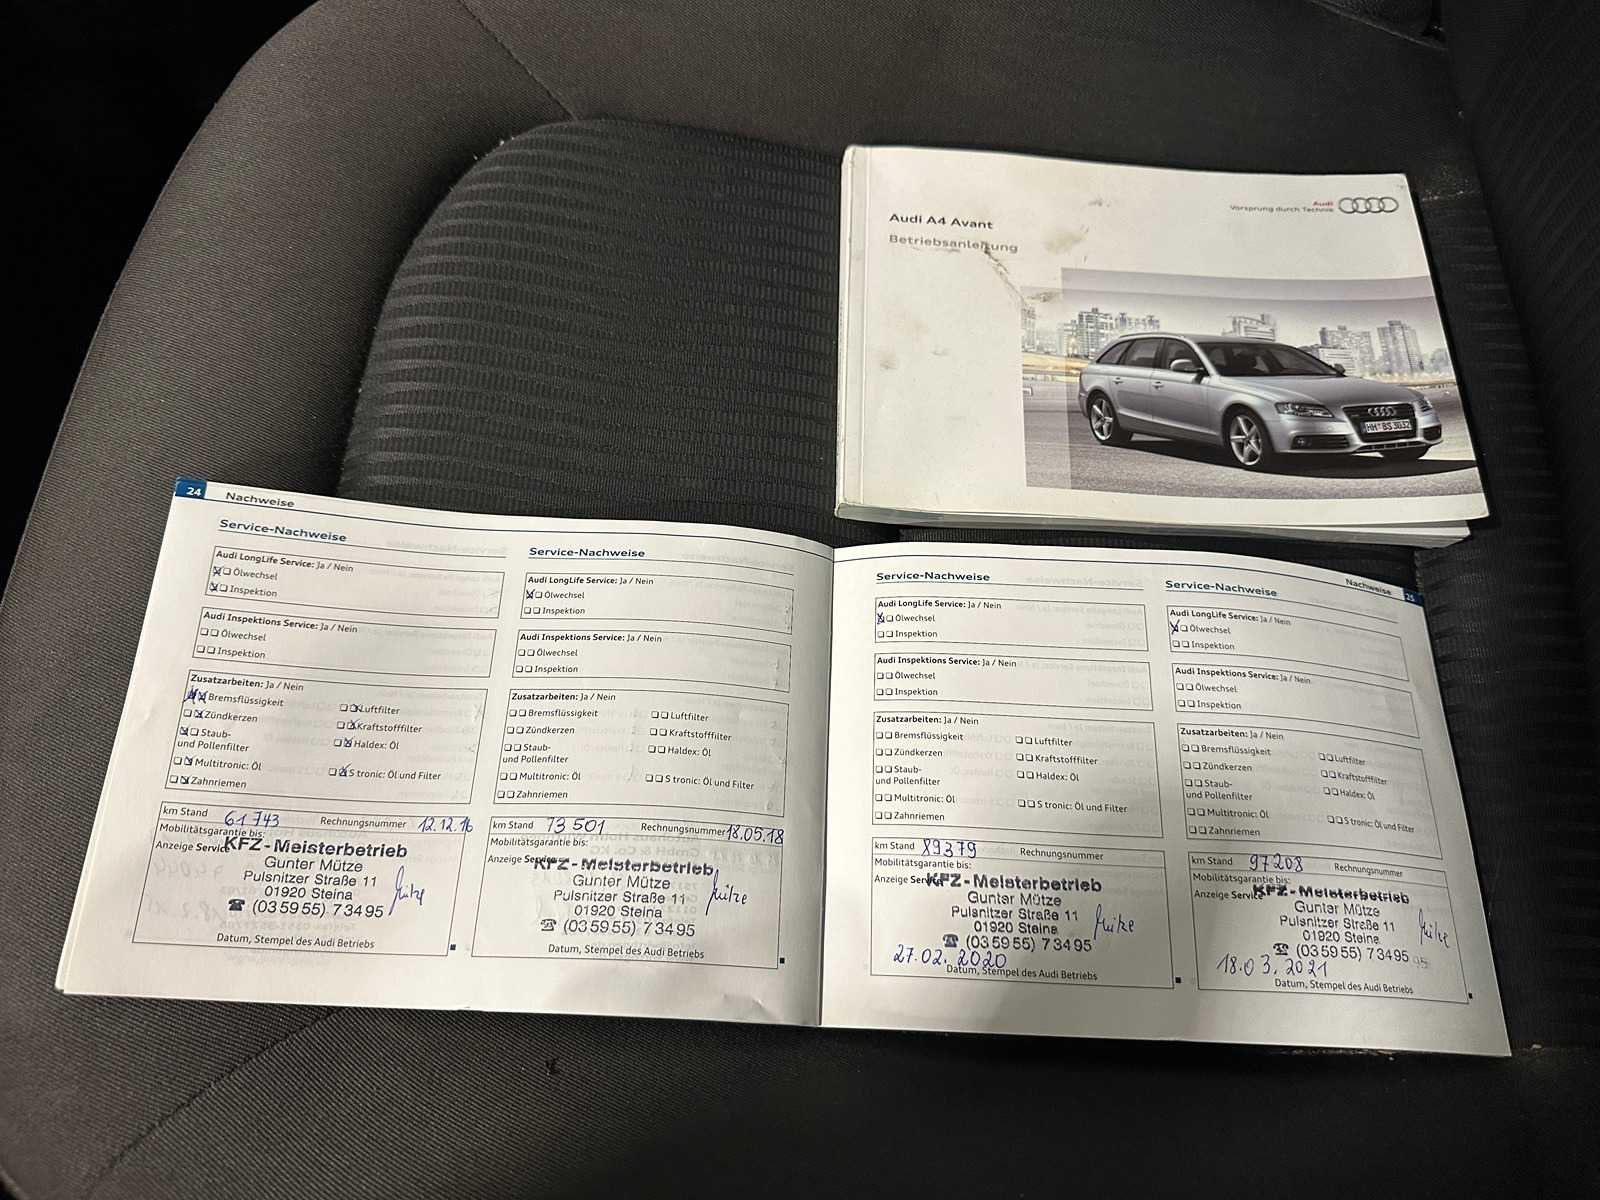 Audi A4 Avant
Betriebsanleitung
Audi
Vorsprung durch Technik
HH BS 3032
24 Nachweise
Service-Nachweise
Audi LongLife Service: Ja / Nein
Ölwechsel
Inspektion
Audi Inspektions Service: Ja / Nein
Ölwechsel
Inspektion
Zusatzarbeiten: Ja / Nein
Bremsflüssigkeit
Luftfilter
Zündkerzen
Kraftstofffilter
Staub-
und Pollenfilter
Haldex: Öl
Multitronic: Öl
S tronic: Öl und Filter
Zahnriemen
km Stand 61 743 Rechnungsnummer 12.12.16
Mobilitätsgarantie bis:
Anzeige Service
KFZ-Meisterbetrieb
Gunter Mütze
Pulsnitzer Straße 11
01920 Steina
☎ (03 59 55) 7 34 95
Mütze
Datum, Stempel des Audi Betriebs
Service-Nachweise
Audi LongLife Service: Ja / Nein
Ölwechsel
Inspektion
Audi Inspektions Service: Ja / Nein
Ölwechsel
Inspektion
Zusatzarbeiten: Ja / Nein
Bremsflüssigkeit
Luftfilter
Zündkerzen
Kraftstofffilter
Staub-
und Pollenfilter
Haldex: Öl
Multitronic: Öl
S tronic: Öl und Filter
Zahnriemen
km Stand 73 501 Rechnungsnummer 18.05.18
Mobilitätsgarantie bis:
Anzeige Service
KFZ-Meisterbetrieb
Gunter Mütze
Pulsnitzer Straße 11
01920 Steina
☎ (03 59 55) 7 34 95
Mütze
Datum, Stempel des Audi Betriebs
Nachweise 25
Service-Nachweise
Audi LongLife Service: Ja / Nein
Ölwechsel
Inspektion
Audi Inspektions Service: Ja / Nein
Ölwechsel
Inspektion
Zusatzarbeiten: Ja / Nein
Bremsflüssigkeit
Luftfilter
Zündkerzen
Kraftstofffilter
Staub-
und Pollenfilter
Haldex: Öl
Multitronic: Öl
S tronic: Öl und Filter
Zahnriemen
km Stand 89379 Rechnungsnummer
Mobilitätsgarantie bis:
Anzeige Service
KFZ-Meisterbetrieb
Gunter Mütze
Pulsnitzer Straße 11
01920 Steina
☎ (03 59 55) 7 34 95
Mütze
27.02.2020
Datum, Stempel des Audi Betriebs
Service-Nachweise
Audi LongLife Service: Ja / Nein
Ölwechsel
Inspektion
Audi Inspektions Service: Ja / Nein
Ölwechsel
Inspektion
Zusatzarbeiten: Ja / Nein
Bremsflüssigkeit
Luftfilter
Zündkerzen
Kraftstofffilter
Staub-
und Pollenfilter
Haldex: Öl
Multitronic: Öl
S tronic: Öl und Filter
Zahnriemen
km Stand 97208 Rechnungsnummer
Mobilitätsgarantie bis:
Anzeige Service
KFZ-Meisterbetrieb
Gunter Mütze
Pulsnitzer Straße 11
01920 Steina
☎ (03 59 55) 7 34 95
Mütze
18.03.2021
Datum, Stempel des Audi Betriebs